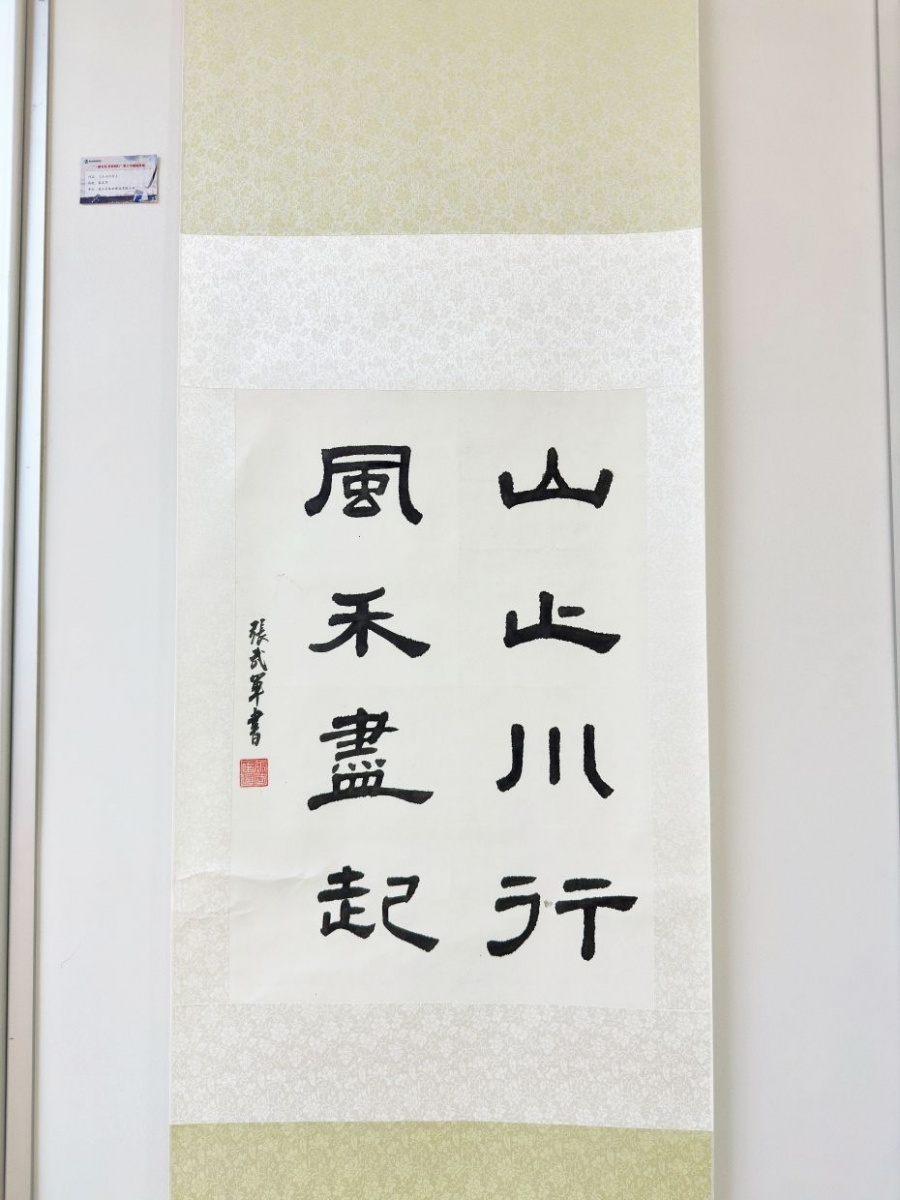 山止川行
風禾盡起
張武軍書